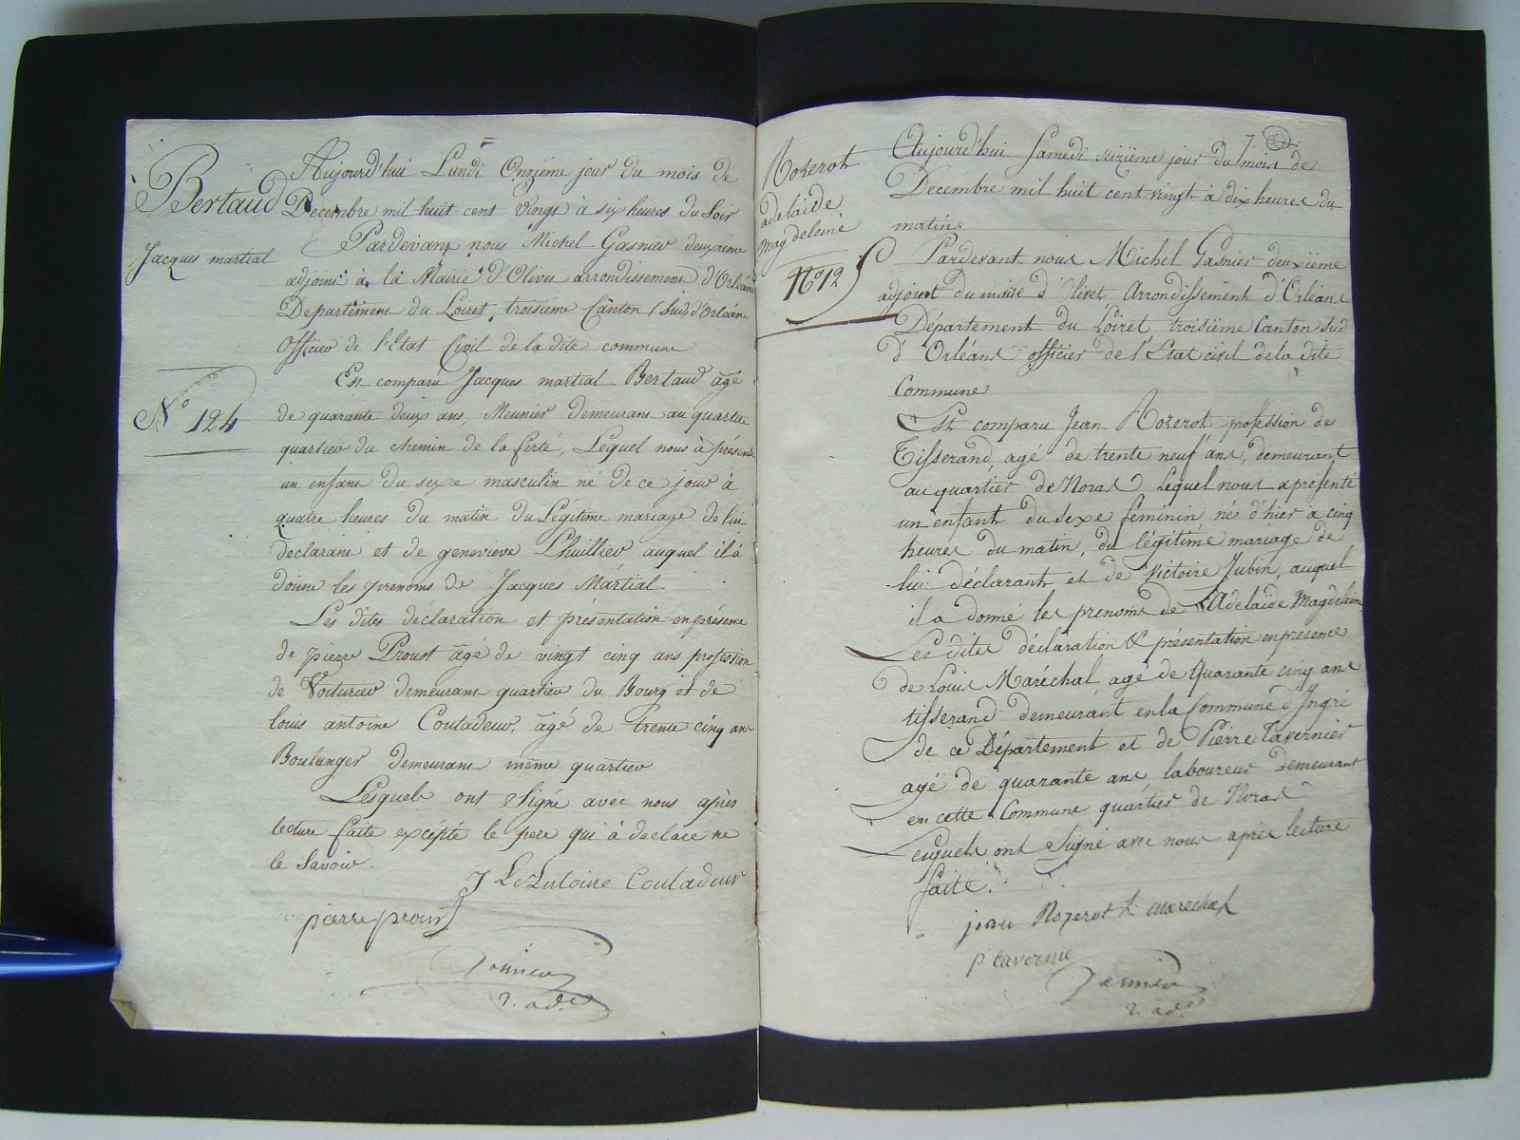 Bertaud
Jacques martial
N.º 124
Aujourd'hui Lundi Onzieme jour du mois de
Decembre mil huit cent vingt à six heures du Soir
Pardevant nous Michel Gasnier deuxième
adjoint à la Mairie d'Olivet arrondissement d'Orléans
Departement du Loiret, troisieme Canton Sud d'Orléans
Officier de l'Etat Civil de la dite commune
Est comparu Jacques martial Bertaud agé
de quarante deux ans, Meunier demeurant au quartier
quartier du chemin de la ferté, Lequel nous à présenté
un enfant du sexe masculin né de ce jour à
quatre heures du matin du Légitime mariage de lui
declarant et de genevieve Lhuillier auquel il à
donné les prenoms de Jacques Martial
Les dites déclaration et présentation en présence
de pierre Proust âgé de vingt cinq ans profession
de Voiturier demeurant quartier du Bourg et de
louis antoine Couladeur, âgé de trente cinq ans
Boulanger demeurant même quartier
Lesquels ont Signé avec nous après
lecture faite excépté le pere qui à declaré ne
le Savoir.
Couladeur
pierre prout
2. ad.
7
Rozerot
adelaide
magdeleine
N.º 125
Aujourd'hui Samedi seizième jour du mois de
Decembre mil huit cent vingt à dix heures du
matin.
Pardevant nous Michel Gasnier deuxième
adjoint du maire d'Olivet Arrondissement d'Orléans
Département du Loiret troisième Canton sud
d'Orléans officier de l'Etat civil de la dite
Commune
Est comparu Jean Rozerot profession de
Tisserand, agé de trente neuf ans, demeurant
au quartier de Noras Lequel nous a présenté
un enfant du sexe féminin né d'hier à cinq
heures du matin, du légitime mariage de
lui déclarant et de Victoire Jubin, auquel
il a donné les prenoms de Adelaïde Magdeleine
Les dites déclaration & présentation en presence
de Louis Maréchal agé de Quarante cinq ans
tisserand demeurant en la Commune d'Ingré
de ce Département et de Pierre Tavernier
agé de quarante ans laboureur demeurant
en cette Commune quartier de Noras
Lesquels ont Signé avec nous après lecture
faite.
jean Rozerot L marechal
p tavernie
2. ad.